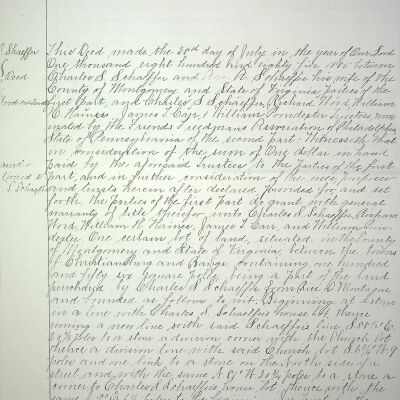 Schaeffer
Deed
This Deed made the 20th day of July in the year of Our Lord
One thousand eight hundred and eighty five 1885 between
Charles S. Schaeffer and R. Schaeffer his wife of the
County of Montgomery and State of Virginia parties of the
first part, and Charles S. Schaeffer, Richard Wood William
H. Haines James T. Carr & William Trustees nom
inated by the Friends Freedmans Association of Philadelphia
State of Pennsylvania of the second part: Witnesseth that
in consideration of the sum of One dollar in hand
paid by the aforesaid Trustees to the parties of the first
part, and in further consideration of the uses purposes
and trusts herein after declared, provided for, and set
forth the parties of the first part do grant, with general
warranty of title therefor unto Charles S. Schaeffer, Richard
Wood, William H. Haines, James T. Carr, and William
One certain lot of land, situated in the County
of Montgomery and State of Virginia between the towns
of Christiansburg and containing one hundred
and fifty six square poles, being a part of the land
purchased by Charles S. Schaeffer from Rice D. Montague
and bounded as follows to wit. Beginning at a stone
in a line with Charles S. Schaeffers house lot, thence
runing a new line with said Schaeffers line S. E.
poles to a stone a division corner with the Church lot
thence a division line with said Church lot S. W. 9
poles and one link to a stone on the North side of a
street, and with the same N. W. poles to a stone a
corner to Charles S. Schaeffers house lot, thence with the